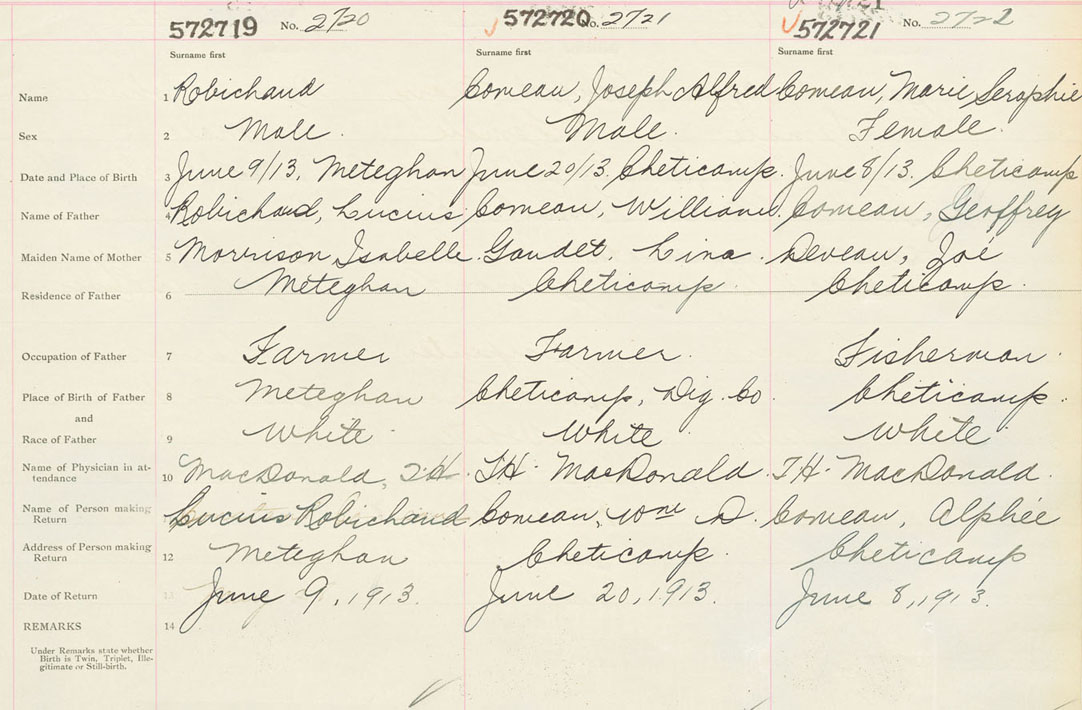 572719 No. 2720 572720 No. 2721 572721 No. 2722
Surname first Surname first Surname first
Name 1 Robichaud Comeau, Joseph Alfred Comeau, Marie Seraphie
Sex 2 Male. Male. Female.
Date and Place of Birth 3 June 9/13, Meteghan June 20/13. Cheticamp. June 8/13. Cheticamp
Name of Father 4 Robichaud, Lucius Comeau, William. Comeau, Geoffrey
Maiden Name of Mother 5 Morrison, Isabelle. Gaudet, Lina. Deveau, Zoé
Residence of Father 6 Meteghan Cheticamp. Cheticamp.
Occupation of Father 7 Farmer Farmer. Fisherman.
Place of Birth of Father 8 Meteghan Cheticamp, Dig. Co. Cheticamp.
and
Race of Father 9 White White White
Name of Physician in at-
tendance 10 MacDonald, T.H. T.H. MacDonald. T.H. MacDonald.
Name of Person making
Return Lucius Robichaud Comeau, Wm D. Comeau, Alphée
Address of Person making
Return 12 Meteghan Cheticamp. Cheticamp
Date of Return 13 June 9, 1913. June 20, 1913. June 8, 1913.
REMARKS 14
Under Remarks state whether
Birth is Twin, Triplet, Ille-
gitimate or Still-birth.